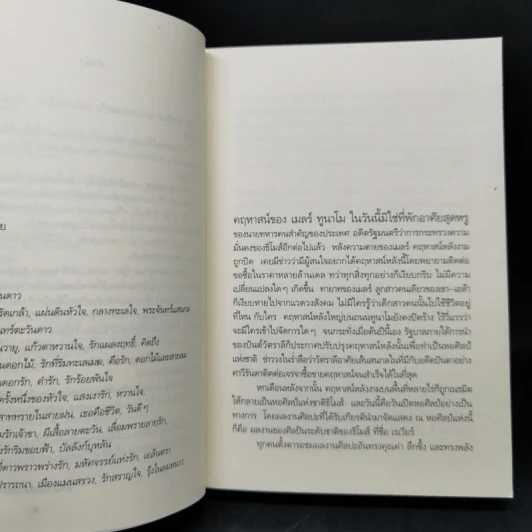 ย
นดาว
ริดเกล้า, แผ่นดินหัวใจ, กลางทะเลใจ, พระจันทร์แสนกล
นทร์ตะวันดาว
นวายุ, แก้วตาหวานใจ, รักแผลงฤทธิ์, คิดถึง
นดอกไม้, รักที่ริมทะเลเมฆ, คือรัก, ดอกไม้และสายลม
นดอกรัก, คำรัก, รักร้อยพันใจ
ครึ่งหนึ่งของหัวใจ, แสงนารัก, หวานใจ,
สาททรายในสายฝน, เธอคือชีวิต, วันดีๆ
มรักเจ้าขา, ผีเสื้อลายตะวัน, เลื่อมพรายลายรัก,
มรักริมขอบฟ้า, บัลลังก์บุหลัน
ที่ดาวพราวพร่างรัก, มหัศจรรย์แห่งรัก, เอลันตรา
ปรารถนา, เมืองแมนสรวง, รักสราญใจ,
คฤหาสน์ของ เมลร์ ทูนาโม ในวันนี้มิใช่ที่พักอาศัยสุดหรู
ของนายทหารคนสำคัญของประเทศ อดีตรัฐมนตรีว่าการกระทรวงความ
มั่นคงของชิโมส์อีกต่อไปแล้ว หลังความตายของเมลร์ คฤหาสน์หลังงาม
ถูกปิด เคยมีข่าวว่ามีผู้สนใจอยากได้คฤหาสน์หลังนี้โดยพยายามติดต่อ
ขอซื้อในราคาหลายล้านเดล ทว่าทุกสิ่งทุกอย่างก็เงียบกริบ ไม่มีความ
เปลี่ยนแปลงใดๆ เกิดขึ้น ทายาทของเมลร์ ลูกสาวคนเดียวของเขา—เอต้า
ก็เงียบหายไปจากแวดวงสังคม ไม่มีใครรู้ว่าเด็กสาวคนนั้นไปใช้ชีวิตอยู่
ที่ไหน กับใคร คฤหาสน์หลังใหญ่บนถนนทูนาโมยังคงปิดร้าง ไร้วี่แววว่า
จะมีใครเข้าไปจัดการใดๆ จนกระทั่งเมื่อต้นปีนี้เอง รัฐบาลภายใต้การนำ
ของปันต์วัตราลีก็ประกาศปรับปรุงคฤหาสน์หลังนั้นเพื่อทำเป็นหอศิลป์
แห่งชาติ
หกเดือนหลังจากนั้น คฤหาสน์หลังงามบนพื้นที่หลายไร่ก็ถูกเนรมิต
ให้กลายเป็นหอศิลป์แห่งชาติชิโมส์ และวันนี้คือวันเปิดหอศิลป์อย่างเป็น
ทางการ โดยผลงานศิลปะที่ได้รับเกียรตินำมาจัดแสดง ณ หอศิลป์แห่งนี้
ก็คือ ผลงานของศิลปินระดับชาติของชิโมส์ ที่ชื่อ เรเวียร์
ทุกคนตั้งตารอชมผลงานศิลปะอันทรงคุณค่า ลึกซึ้ง และทรงพลัง